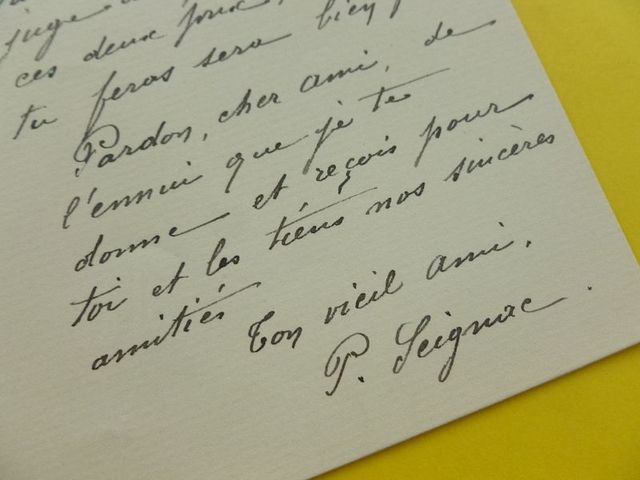 juge
ces deux jours,
tu feras sera bien
Pardon, cher ami, de
l'ennui que je te
donne et reçois pour
toi et les tiens nos sincères
amitiés
Ton vieil ami,
P. Seignac.